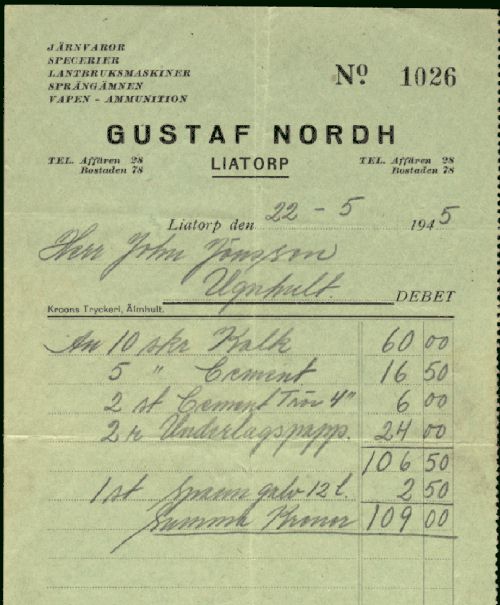 JÄRNVAROR
SPECERIER
LANTBRUKSMASKINER
SPRÄNGÄMNEN
VAPEN - AMMUNITION
Nº 1026
GUSTAF NORDH
TEL. Affären 28
Bostaden 78
LIATORP
TEL. Affären 28
Bostaden 78
Liatorp den 22 - 5 1945
Herr John Jönsson
Ugnhult.
DEBET
Kroons Tryckeri, Älmhult.
An 10 skr Kalk 60 00
5 " Cement 16 50
2 st Cement Trör 4" 6 00
2 r Underlagspapp. 24 00
106 50
1 st Spann galv 12 l. 2 50
Summa Kronor 109 00